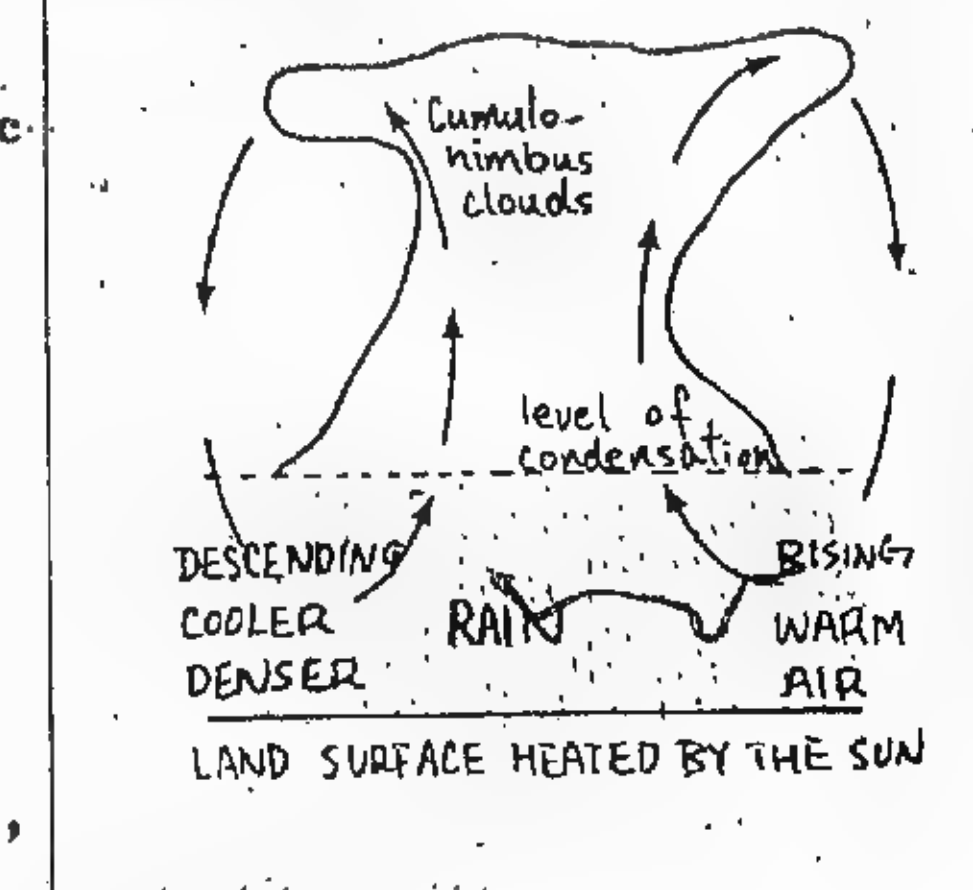 c
Cumulo-
nimbus
clouds
level of
condensation
DESCENDING
COOLER
DENSER
RAIN
RISING
WARM
AIR
LAND SURFACE HEATED BY THE SUN
,